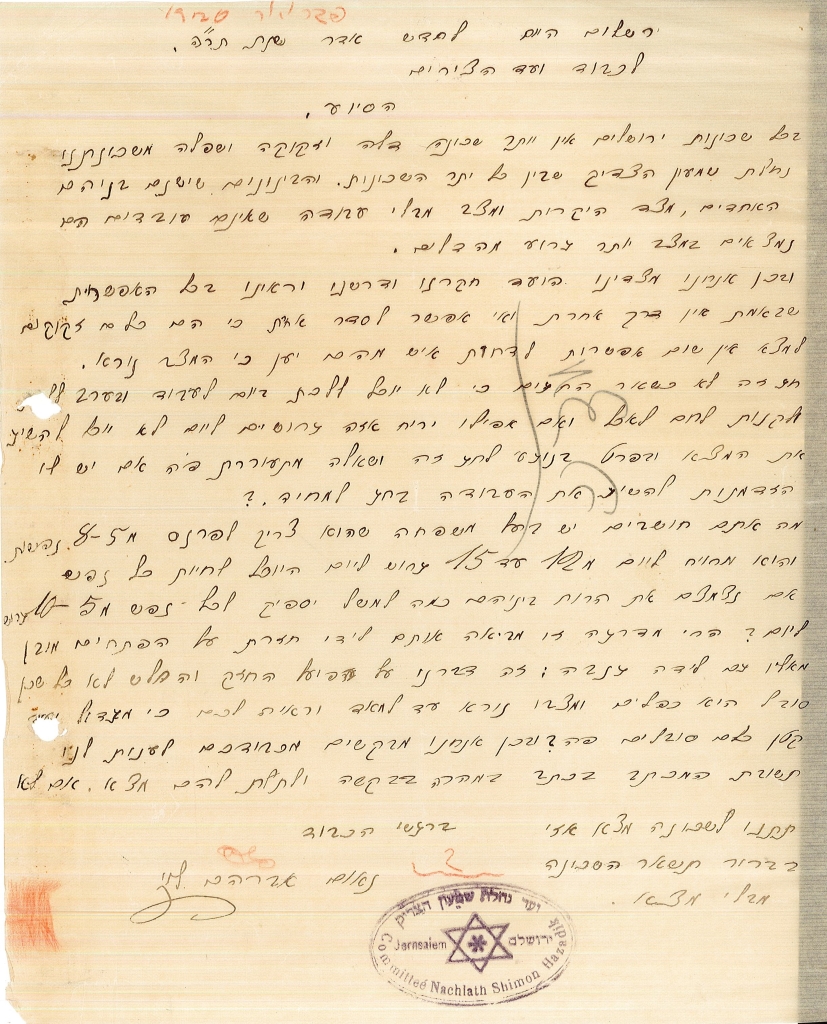 ירשלום היום לחדש אדר שנת תר״פ.
לכבוד ועד הצירים
הסיוע.
בכל שכונות ירושלים אין יותר שכונה דלה וזקוקה ושפלה משכונתנו
נחלת שמעון הצדיק שבין כל יתר השכונות. והבינונים שישנם בניהם
האחדים, מצד היקרות ומצב מבלי עבודה שאינם עובדים הם
נמצאים במצב יותר גרוע מהדלים.
ובכן אנחנו מצדינו הועד חקרנו ודרשנו וראינו בכל האפשרית
שבאמת אין דרך אחרת ואי אפשר לסדר אחת כי הם כלם זקוקים
למצא אין שום אפשרות לדחות איש מהם יען כי המצב נורא.
חג זה לא כשאר החגים כי לא יוכל ללכת ביום לעבוד ובערב
לקנות לחם לאכל ואם אפילו יריח איזה גרושים ליום לא יוכל להשיג
את המצא ובפרט בנוגע לחג זה ושאלה מתעוררת פ״ה אם יש לו
הזדמנות להשיג את העבודה בחג למחיר.?
מה אתם חושבים יש בעל משפחה שהוא צריך לפרנס מ5-8 נפישות.
והוא מרויח ליום מ10 עד 15 גרוש ליום היוכל לחיות כל נפש
אם נצמצם את הרוח ביניהם כמה למשל יספיק לכל נפש מ5-10 גרוש
ליום? הרי מדרגה זו מביאה אותם לידי חזרת על הפתחים מובן
מאליו גם לידה גנבה; זה דברנו על הפועל החזק והבלש לא כל שכן
סובל היא כפלים ומצבו נורא עד למאד וראית לכם כי מגדול ועד
קטן כלם סובלים פה? ובכן אנחנו מבקשים מכבודכם לענות לנו
תשובת המכתב בכתב במהרה בבקשה ולתלת להם מצא. אם לא
תתנו לשכונה מצא אזי
ברגשי הכבוד
בברור תשאר השכונה
נאום אברהם לוי
מבלי מצא.
ועד נחלת שמעון הצדיק
Jerusalem ירושלים
Committee Nachlath Shimon Hazadik